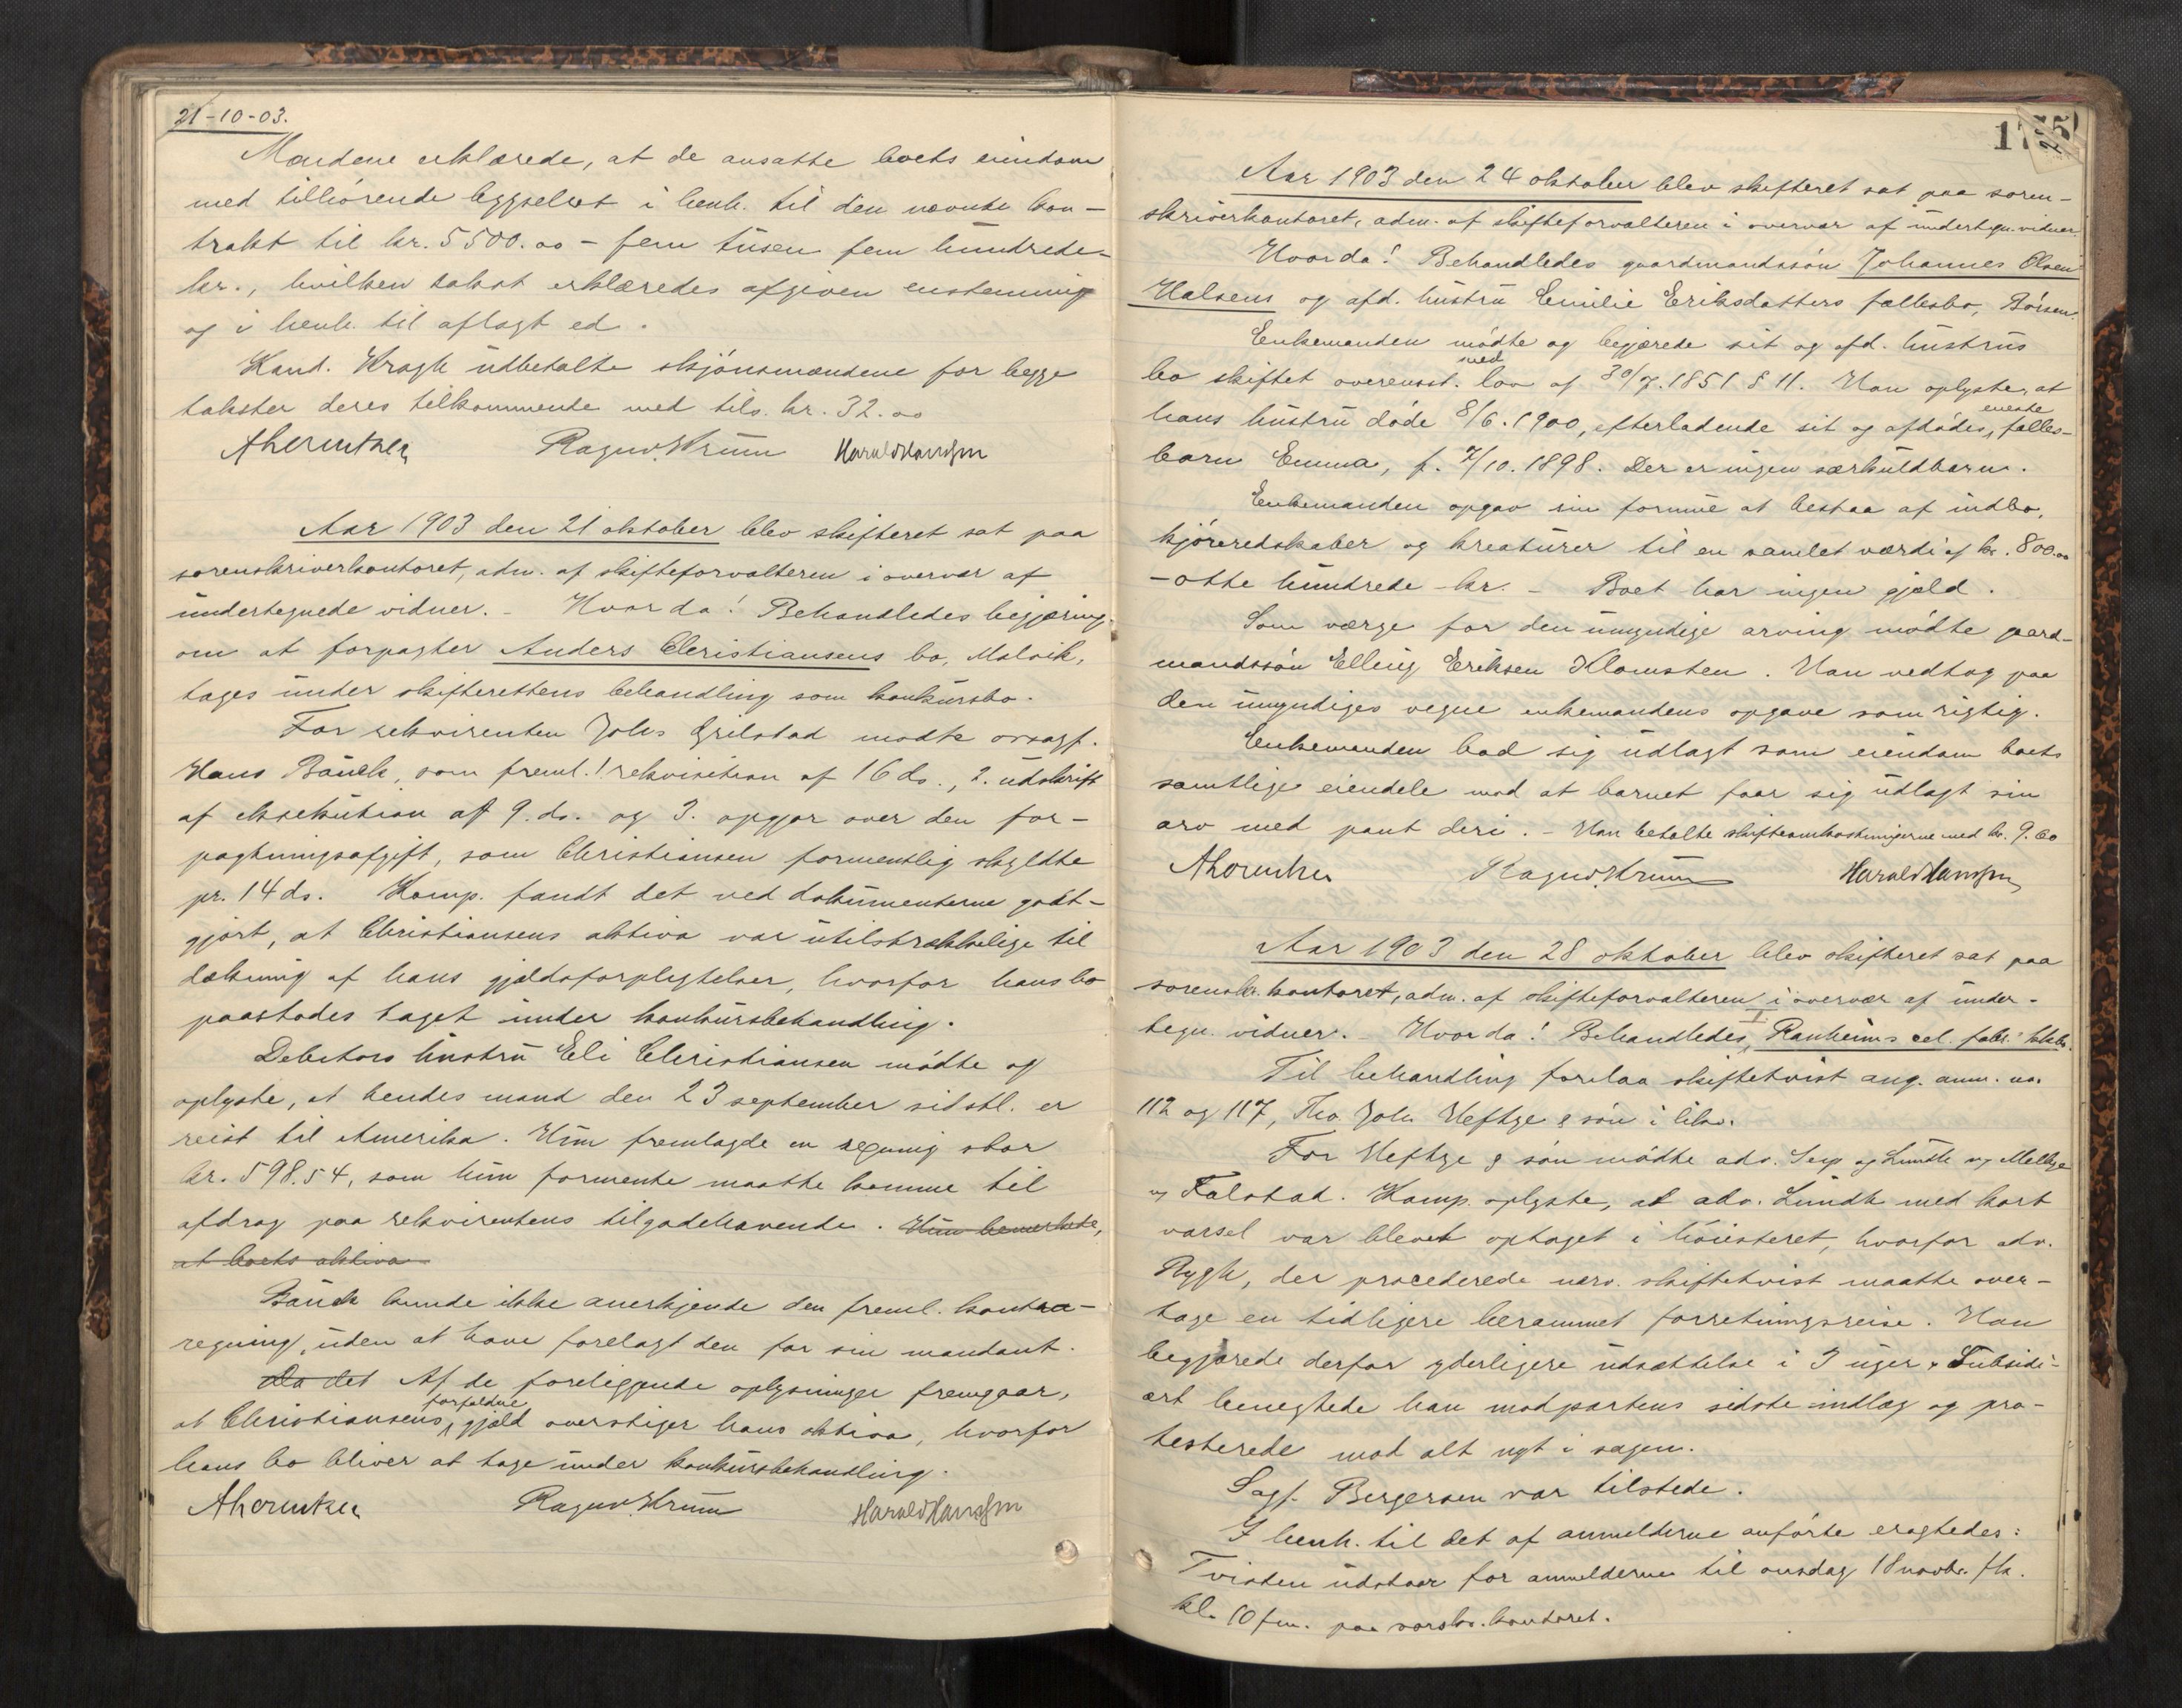 21-10-03.
Mændene erklærede, at de ansatte boets eiendom
med tilhörende byggselret i henh. til den nævnte kon-
trakt til kr. 5500.00 - fem tusen fem hundrede-
kr., hvilken takst erklæredes afgiven enstemmig
og i henh. til aflagt ed.
Kand. Krogh udbetalte skjönsmændene for begge
takster deres tilkommende med tils. kr. 32.00
Ragnv. Krum Harald Hanssen
Aar 1903 den 21 oktober blev skifteret sat paa
sorenskriverkontoret, adm. af skifteforvalteren i overvær af
undertegnede vidner. - Hvorda! Behandledes begjæring
om at forpagter Anders Christiansens bo, Malvik,
tages under skifterettens behandling som konkursbo.
For rekvirenten Johs Grilstad mødte orsagf.
Hans Bauck, som freml. 1 rekvisition af 16 ds., 2. udskrift
af eksekution af 9. ds. og 3. opgjør over den for-
pagtningsafgift, som Christiansen formentlig skyldte
pr. 14 ds. Komp. fandt det ved dokumenterne godt-
gjort, at Christiansens aktiva var utilstrækkelige til
dækning af hans gjældsforpligtelser, hvorfor hans bo
paastodes taget under konkursbehandling.
Debitors hustru Eli Christiansen mödte og
oplyste, at hendes mand den 23 september sidstl. er
reist til Amerika. Hun fremlagde en regning stor
kr. 598.54, som hun formente maatte komme til
afdrag paa rekvirentens tilgodehavende. Hun bemerkede,
at boets aktiva
Bauck kunde ikke anerkjende den freml. kontra-
regning, uden at have forelagt den for sin mandant.
Da det Af de foreliggende oplysninger fremgaar,
forfaldne
at Christiansens gjæld overstiger hans aktiva, hvorfor
hans bo bliver at tage under konkursbehandling.
Ragnv. Krum Harald Hanssen
Aar 1903 den 24 oktober blev skifteret sat paa soren-
skriverkontoret, adm. af skifteforvalteren i overvær af undertegn. vidner.
Hvorda! Behandledes gaardmandssön Johannes Olsen
Halsens og afd. hustru Emilie Eriksdatters fællesbo, Börsen.
Enkemanden mödte og begjærede sit og afd. hustrus
med
bo skiftet overensst. lov af 30/7. 1851 § 11. Han oplyste, at
eneste
hans hustru döde 8/6. 1900, efterladende sit og afdödes fælles-
barn Emma, f. 7/10. 1898. Der er ingen særkuldbarn.
Enkemanden opgav sin formue at bestaa af indbo,
kjöreredskaber og kreaturer til en samlet værdi af kr. 800.00
- otte hundrede kr. - Boet har ingen gjæld.
Som værge for den umyndige arving mödte gard-
mandssön Elling Eriksen Klomsten. Han vedtog paa
den umyndiges vegne enkemandens opgave som rigtig.
Enkemanden bad sig udlagt som eiendom boets
samtlige eiendele mod at barnet faar sig udlagt sin
arv med pant deri. - Han betalte skifteomkostningerne med kr. 9.60
Ragnv. Krum Harald Hanssen
Aar 1903 den 28 oktober blev skifteret sat paa
sorenskr. kontoret, adm. af skifteforvalteren i overvær af under-
I.
tegn. vidner. - Hvorda! Behandledes Ranheims cel. fabr.
Til behandling forelaa skiftetvist ang. anm. no.
112 og 117, Tho. Joh. Heftye & sön i likv.
For Heftye & sön mödte adv. Lundh og Mellbye
og Falstad. Komp. oplyste, at adv. Lundh med kort
varsel var blevet optaget i höiesteret, hvorfor adv.
Rygh, der procederede nærv. skiftetvist maatte over-
tage en tidligere berammet forretningsreise. Han
begjærede derfor yderligere udsættelse i 3 uger. Subsidi-
ært benegtede han modpartens sidste indlæg og pro-
testerede mod alt nyt i sagen.
Sagf. Bergersen var tilstede.
I henh. til det af anmelderne anförte eragtedes:
Tvisten udstaar for anmelderne til onsdag 18 novbr. fk.
kl. 10 fm. paa kontoret.